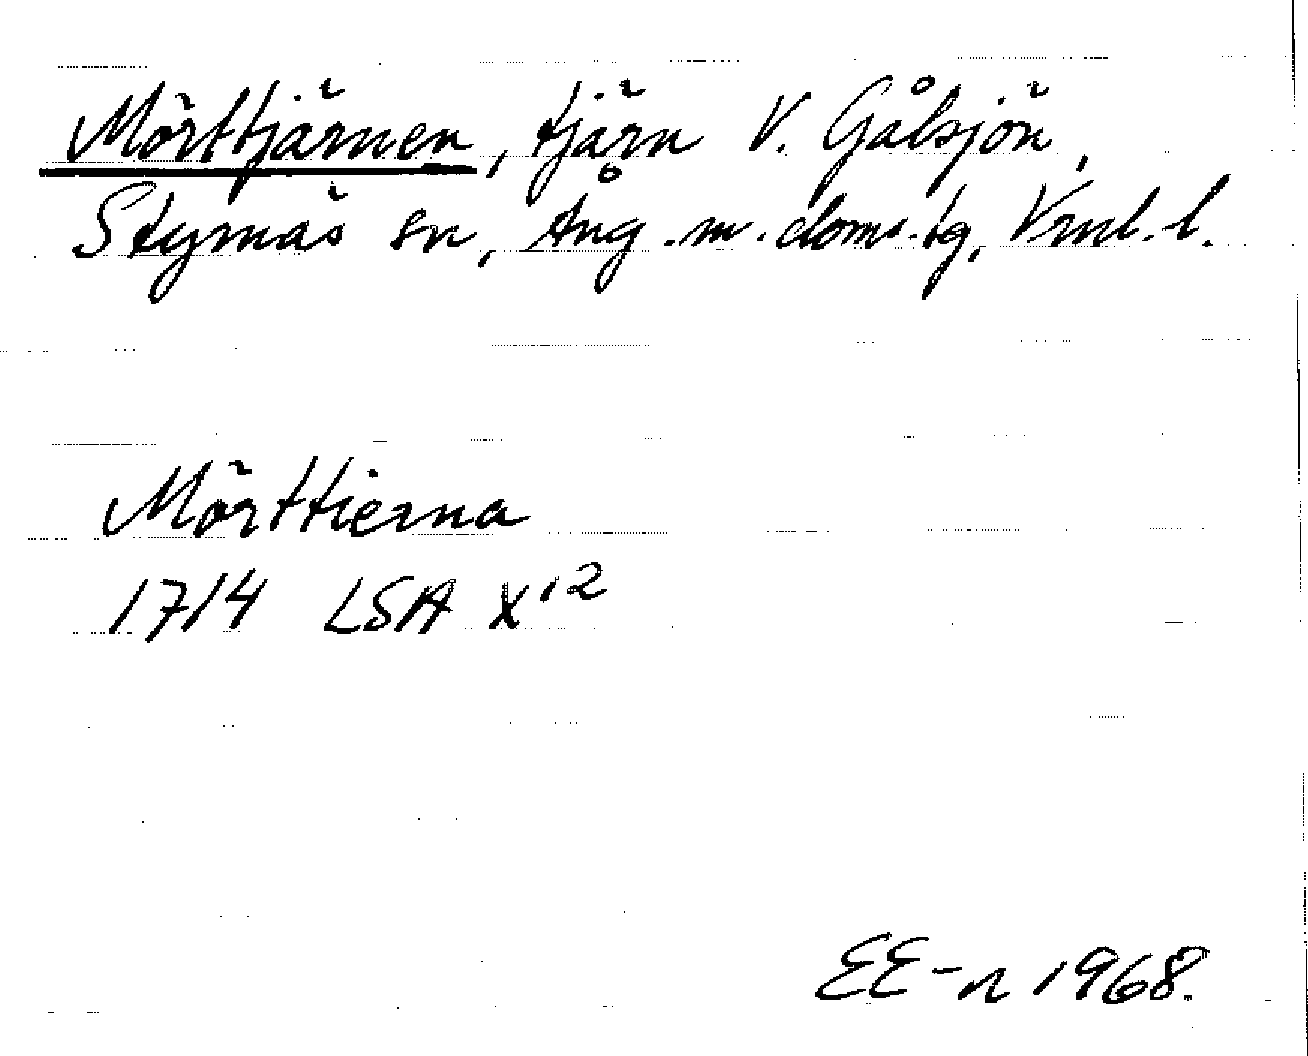 Mörttjärnen, tjärn V. Gålsjön,
Stymås sn, Ång. m. doms.tg, Vrnl. l.
Mörttierna
1714 LSA X12
EE-n 1968.